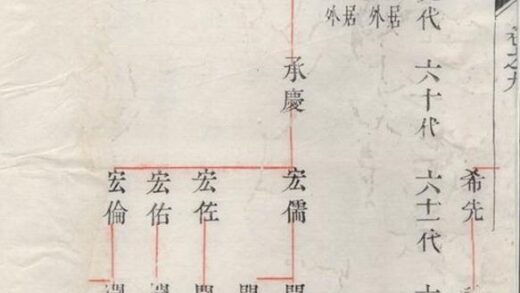 卷之九
希先
代
六十代
六十一代
居外
居外
承慶
宏儒
宏佐
宏佑
宏倫